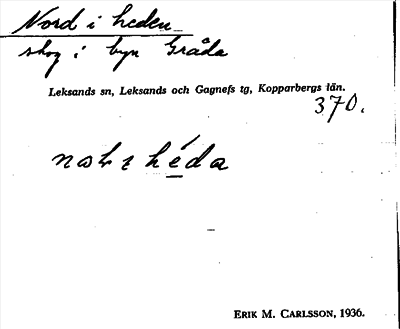 Nord i heden
skog i byn Gråda
Leksands sn, Leksands och Gagnefs tg, Kopparbergs län.
370.
héda
ERIK M. CARLSSON, 1936.